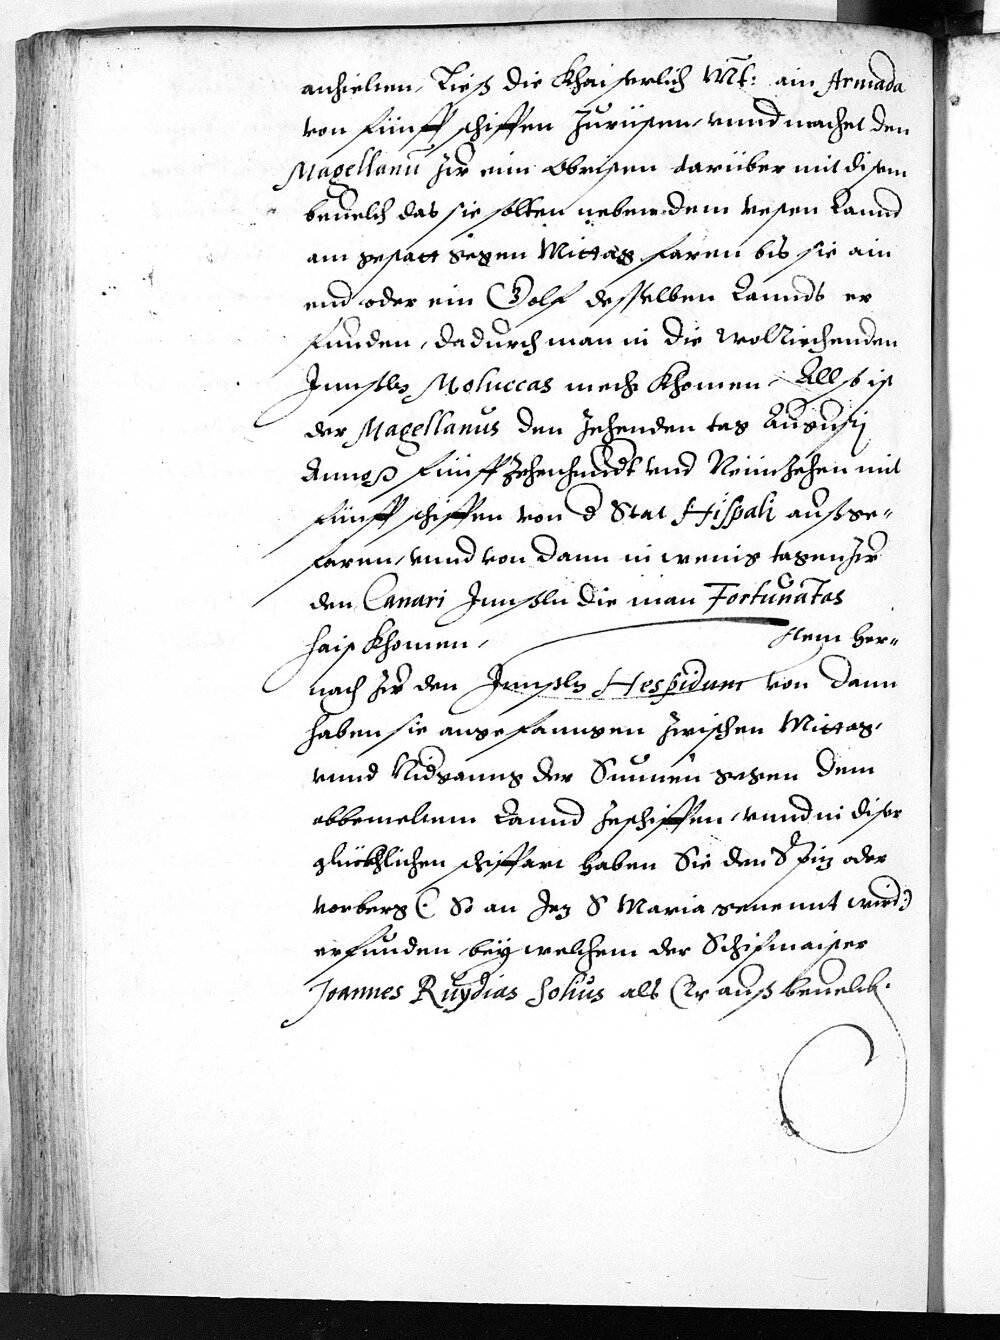 anhielten, Ließ die Khaiserlich Mt: ain Armada
von fünff schiffen Zurüsten, vnnd machet den
Magellanū Zur eim Obristen darüber mit disem
beuelch das sie solten neben dem vesten Lannd
am gestatt gegen Mittag faren bis sie ain
end oder ein Golf desselben Lannds er
funden, dadurch man in die wolRiechenden
Innseln Moluccas mecht Khomen, Allso ist
der Magellanus den Zehenden tag Augusti
Anno fünffzehenhundt vnd Neünzehen mit
fünff schiffen von d Stat Hispali außge-
faren, vnnd von dann in wenig tagen Zur
den Canari Innseln die man Fortunatas
haist Khomen, Item her-
nach Zur den Innseln Hespidum von dann
haben sie angefanngen Zwischen Mittag,
vnnd Nidganng der Sunnen gegen dem
obbemeltem Lannd Zeschiffen, vnnd in diser
glückhlichen schiffart haben Sie den Spiz oder
vorberg (: So an Jez S Maria genennt wird:)
erfunden bey welchem der Schifmaister
Joannes Ruydias Solius als Er auß beuelch.